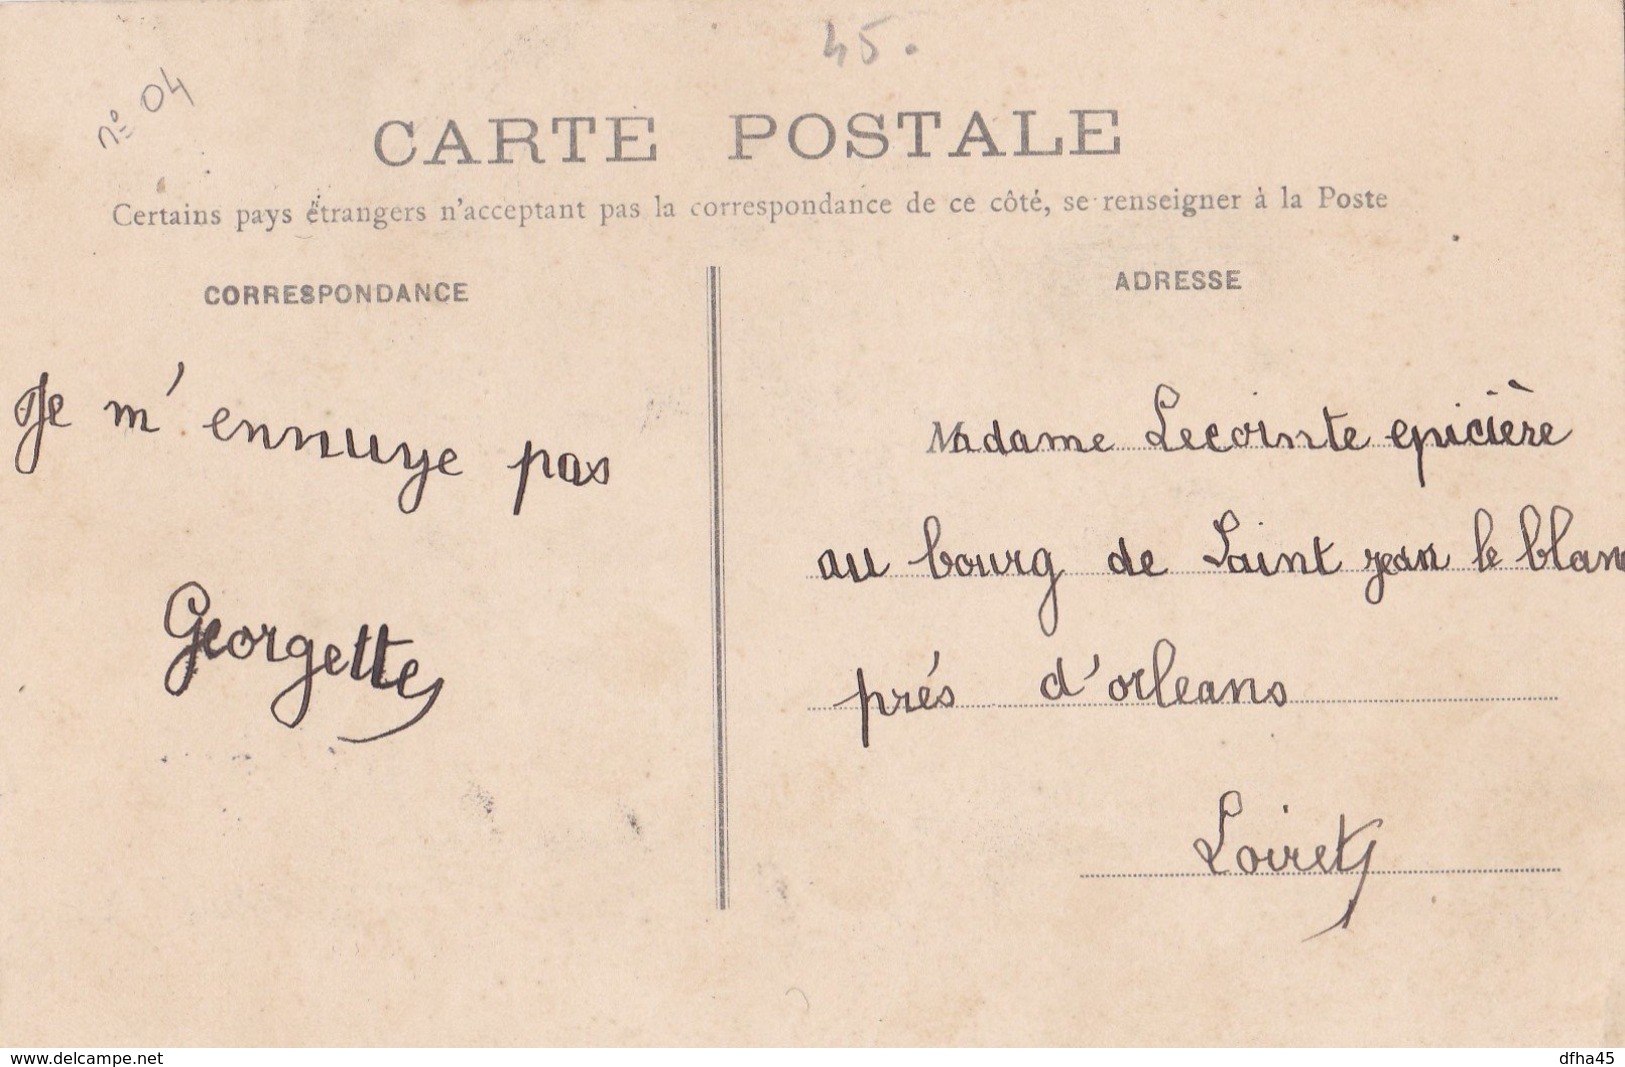 45.
nº 04
CARTE POSTALE
Certains pays étrangers n'acceptant pas la correspondance de ce côté, se renseigner à la Poste
CORRESPONDANCE
Je m' ennuye pas
Georgette
ADRESSE
Madame Lecointe epicière
au bourg de Saint jean le blan
prés d'orleans
Loiret
www.delcampe.net
dfha45